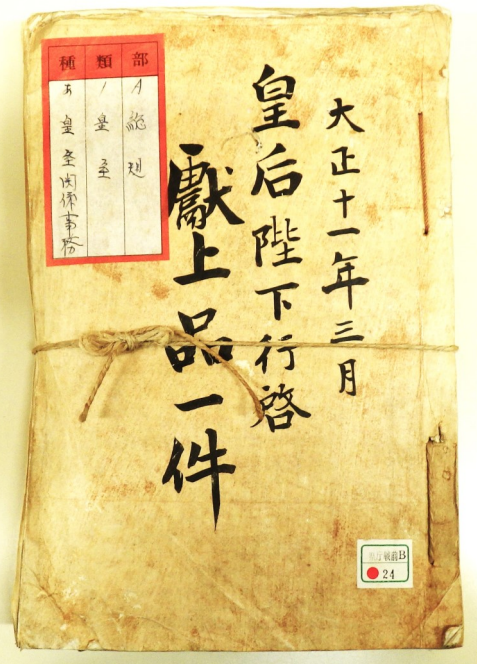 大正十一年三月
皇后陛下行啓
獻上品一件
部
A 総規
類
1 皇室
種
5 皇室関係事務
戦前B
24